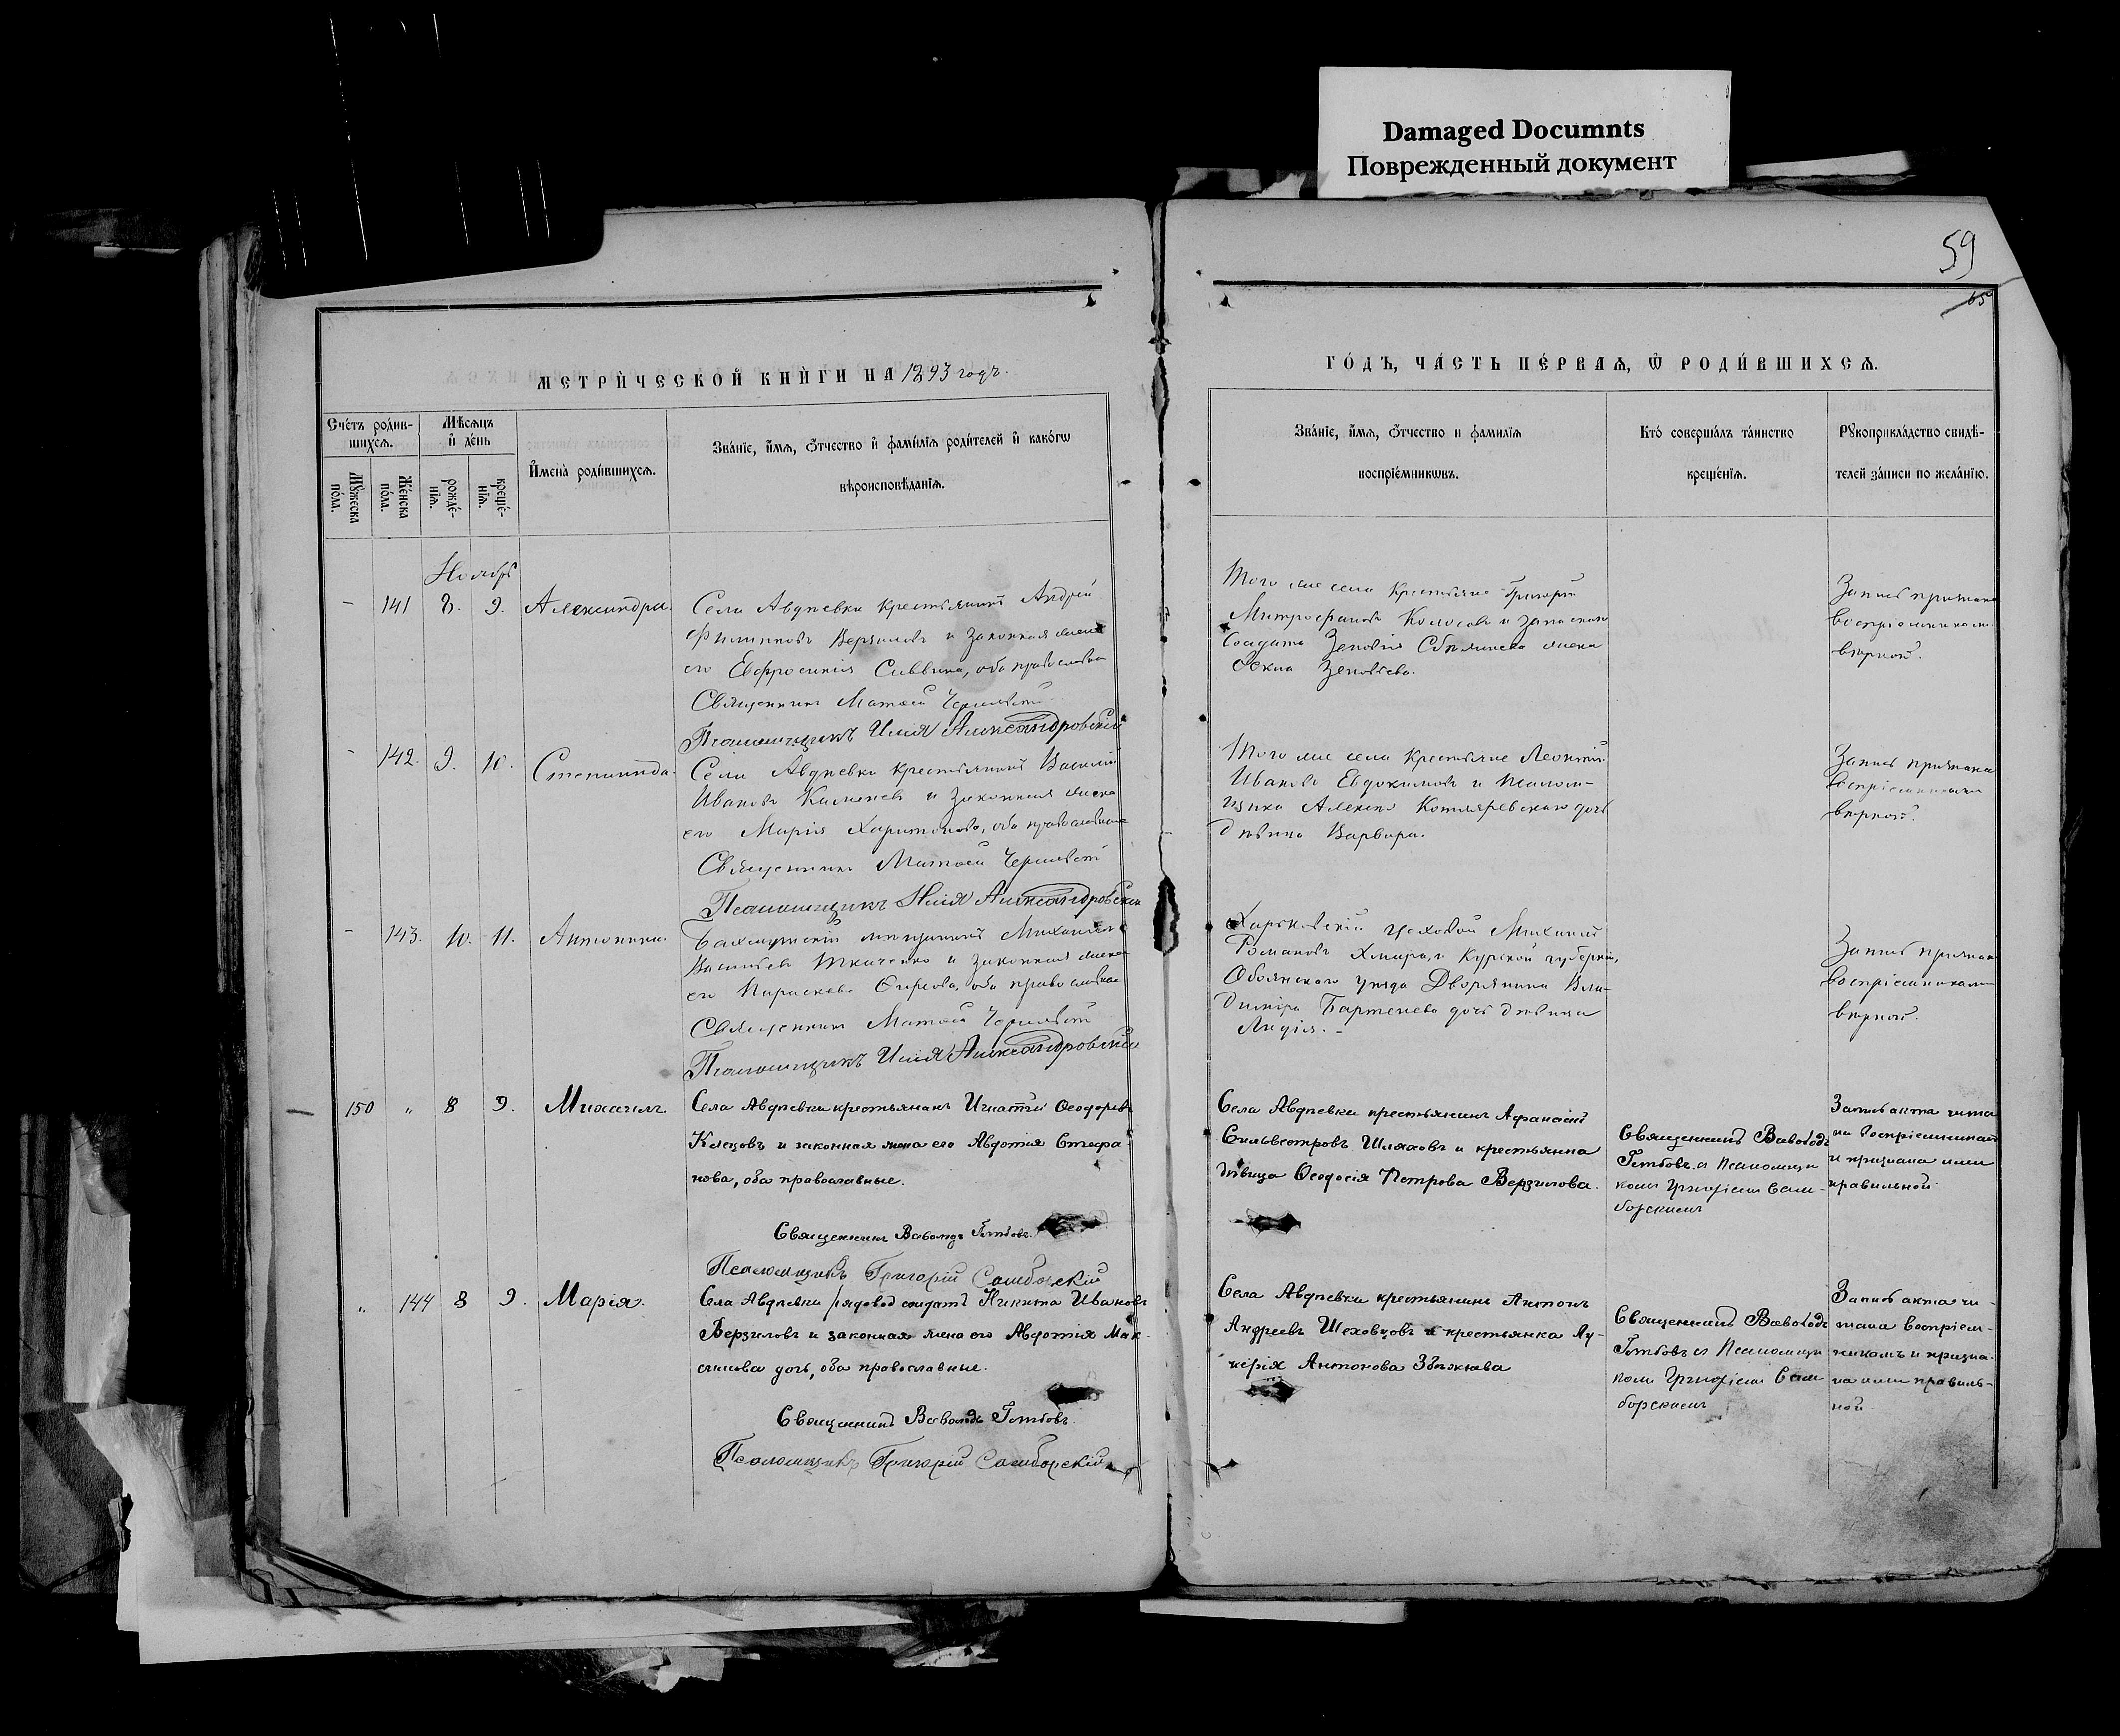 Damaged Documnts
Поврежденный документ
59
65
МЕТРИ́ЧЕСКОЙ КНИ́ГИ НА 1893 годъ.
ГО́ДЪ, ЧА́СТЬ ПЕ́РВАѦ, Ѿ РОДИ́ВШИХСѦ.
Сче́тъ роди́в-
шихсѧ.
Мꙋ́жеска по́ла.
Же́нска по́ла.
Мѣ́сѧцъ
и҆ де́нь
рожде́-
нїѧ.
креще́-
нїѧ.
И҆мена̀ роди́вшихсѧ.
Зва́нїе, и҆́мѧ, ѻ҆́тчество и҆ фами́лїѧ роди́телей и҆ како́гѡ
вѣроисповѣ́данїѧ.
Зва́нїе, и҆́мѧ, ѻ҆́тчество и фами́лїѧ
воспрїе́мникѡвъ.
Кто́ соверша́лъ та́инство
креще́нїѧ.
Рꙋкоприкла́дство свидѣ́-
телей за́писи по жела́нїю.
Ноябрь
- 141 8. 9. Александра.
Села Авдѣевки крестьянинъ Андрей
Филиповъ Верзиловъ и законная жена
его Евфросинія Саввина, оба православн
Священникъ Матѳей Чернявскій
Псаломщикъ Илія Александровскій
Того же села крестьяне Григорій
Митрофановъ Колосовъ и запаснаго
Солдата Зеновія жена
Зеновіева.
Запись признана
воспріемниками
вѣрной.
- 142. 9. 10. Степанида.
Села Авдѣевки крестьянинъ Василій
Ивановъ Калининъ и законная жена
его Марія Харитонова, оба православные
Священникъ Матѳей Чернявскій
Псаломщикъ Илія Александровскій
Того же села крестьяне Леонтій
Ивановъ Евдокимовъ и псалом-
щика Алексія Котляревскаго дочь
дѣвица Варвара.
Запись признана
воспріемниками
вѣрной.
- 143. 10. 11. Антонина.
Бахмутскій мѣщанинъ Михаилъ
Васильевъ Ткаченко и законная жена
его Параскева оба православные
Священникъ Матѳей Чернявскій
Псаломщикъ Илія Александровскій
Харьковскій цеховой Михаилъ
Романовъ Хмара, и Курской губерніи,
Обоянскаго уѣзда Дворянина Вла-
диміра Бартенева дочь дѣвица
Лидія. -
Запись признана
воспріемниками
вѣрной.
150 „ 8 9. Михаилъ.
Села Авдѣевки крестьянинъ Игнатій Ѳеодоровъ
Клецовъ и законная жена его Авдотія Стефа
нова, оба православные.
Священникъ Всеволодъ
Псаломщикъ Григорій Самборскій
Села Авдѣевки крестьянинъ Афанасій
Сильвестровъ Шляховъ и крестьянка
дѣвица Ѳеодосія Петрова Верзилова.
Священникъ Всеволодъ
съ Псаломщи
комъ Григоріемъ Сам-
борскимъ
Запись акта чита
на воспріемникам
и признана ими
правильной.
„ 144 8 9. Марія.
Села Авдѣевки рядовой солдатъ Никита Ивановъ
Верзиловъ и законная жена его Авдотія Мак-
симова дочь, оба православные.
Священникъ Всеволодъ
Псаломщикъ Григорій Самборскій
Села Авдѣевки крестьянинъ Антонъ
Андреевъ Шеховцовъ и крестьянка Лу-
керія Антонова
Священникъ Всеволодъ
съ Псаломщи
комъ Григоріемъ Сам
борскимъ
Запись акта чи-
тана воспріем-
никамъ и призна-
на ими правиль-
ной.